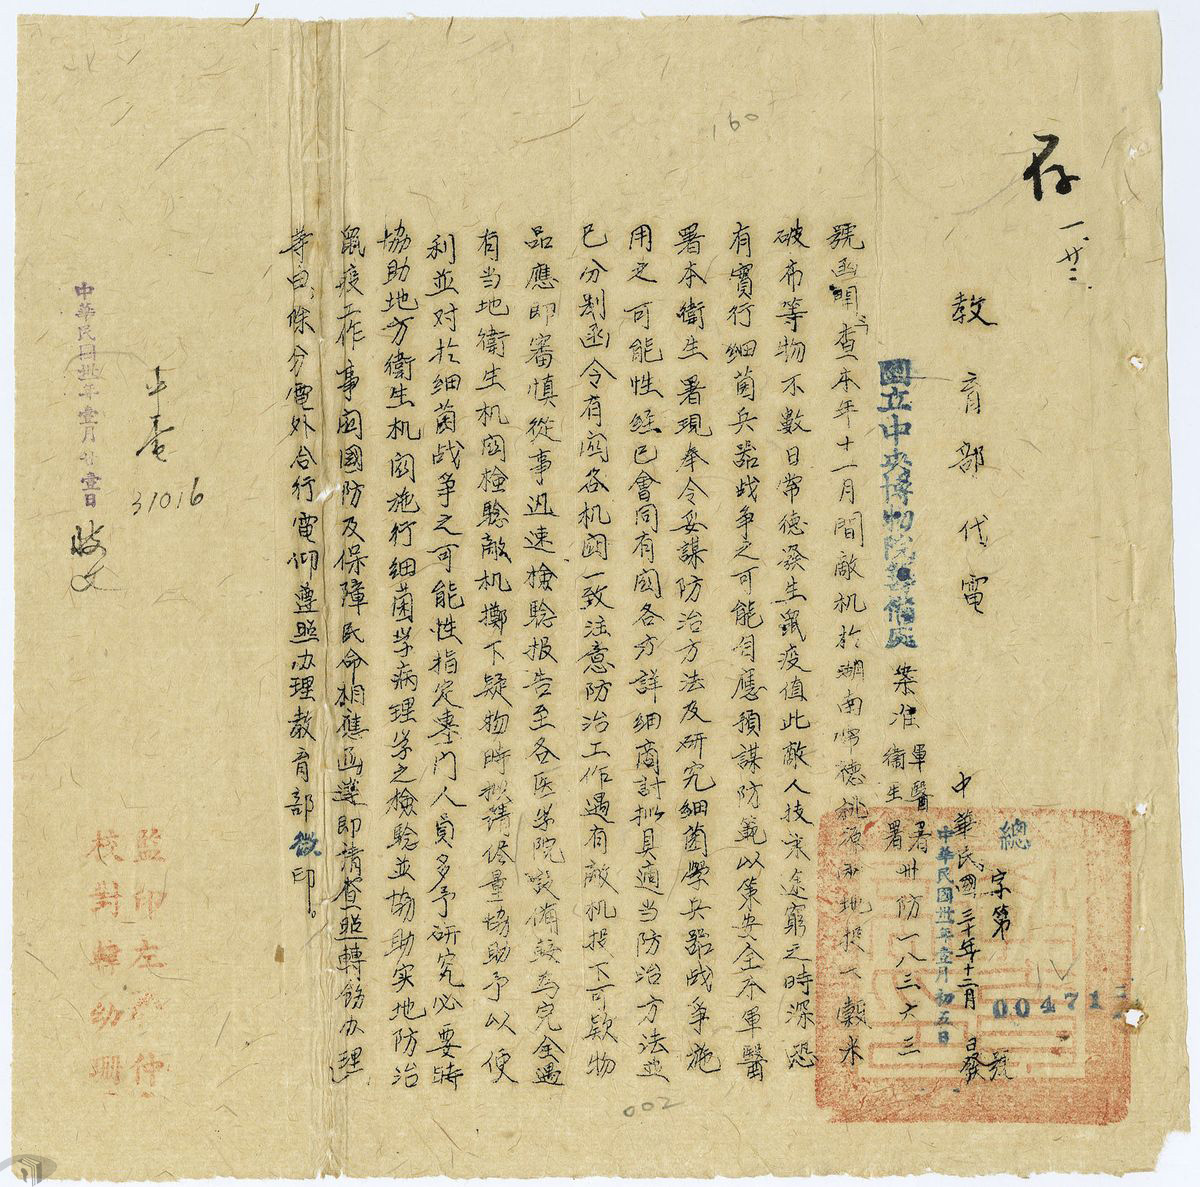 存
一、廿二、
教育部代電
總字第 00471 號
中華民國三十年十二月 日發
中華民國卅壹年壹月初五日
國立中央博物院籌備處 案准 軍醫署 衛生署 卅防一八三六三
號函開「查本年十一月間敵机於湖南常德桃源兩地投下穀米
破布等物不數日常德發生鼠疫值此敵人技末途窮之時深恐
有實行細菌兵器战争之可能自應預謀防範以策安全本軍醫
署本衛生署現奉令妥謀防治方法及研究細菌學兵器战争施
用之可能性經已會同有関各方詳細商討拟具適当防治方法並
已分别函令有関各机関一致注意防治工作遇有敵机投下可欵物
品應即審慎從事迅速檢驗报告至各医学院設備較為完全遇
有当地衛生机関檢驗敵机擲下疑物時拟請侭量協助予以便
利並对於细菌战争之可能性指定專门人員多予研究必要時
協助地方衛生机関施行细菌学病理学之檢驗並協助实地防治
鼠疫工作事関國防及保障民命相應函達即請查照轉飭办理」
等由、除分電外合行電仰遵照办理教育部 微 印。
31016
中華民國卅年壹月廿壹日
收文
監印左 仲
校對韓幼珊
160
002